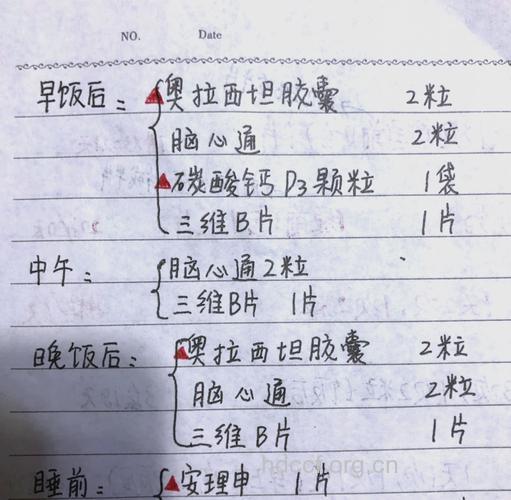 NO. Date
早饭后: ▲奥拉西坦胶囊 2粒
脑心通 2粒
▲碳酸钙D3颗粒 1袋
三维B片 1片
中午: 脑心通2粒
三维B片 1片
晚饭后: ▲奥拉西坦胶囊 2粒
脑心通 2粒
三维B片 1片
睡前: ▲安理申 1片
hdccf.org.cn